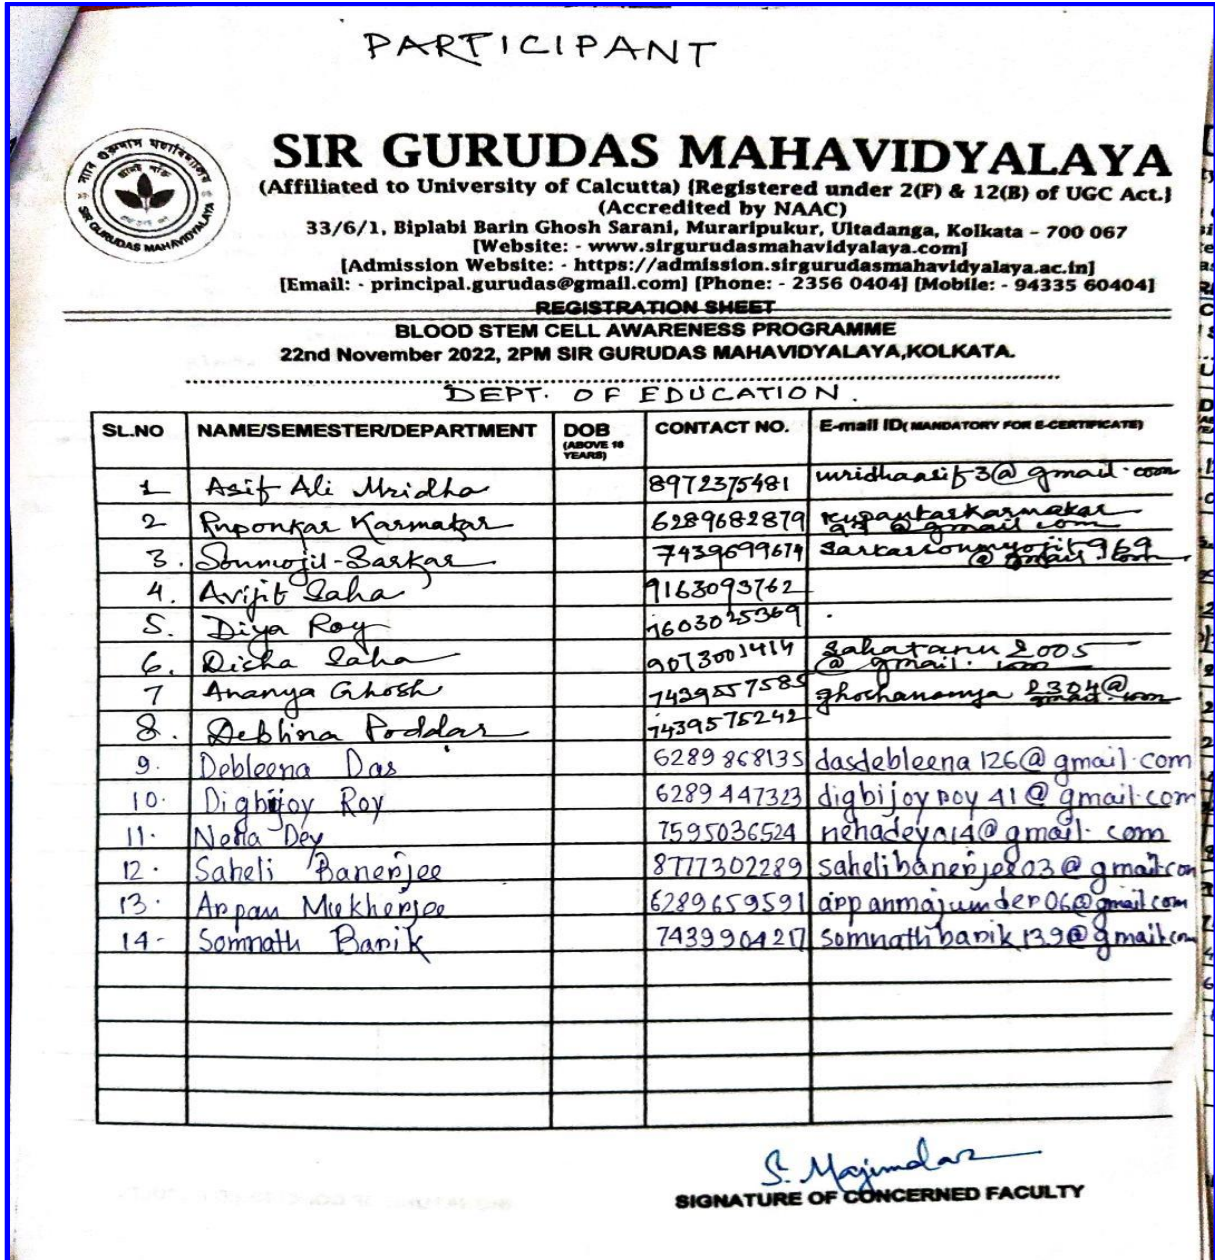 PARTICIPANT
স্যার গুরুদাস মহাবিদ্যালয়
SIR GURUDAS MAHAVIDYALAYA
SIR GURUDAS MAHAVIDYALAYA
(Affiliated to University of Calcutta) {Registered under 2(F) & 12(B) of UGC Act.}
(Accredited by NAAC)
33/6/1, Biplabi Barin Ghosh Sarani, Muraripukur, Ultadanga, Kolkata – 700 067
[Website: - www.sirgurudasmahavidyalaya.com]
[Admission Website: - https://admission.sirgurudasmahavidyalaya.ac.in]
[Email: - principal.gurudas@gmail.com] [Phone: - 2356 0404] [Mobile: - 94335 60404]
REGISTRATION SHEET
BLOOD STEM CELL AWARENESS PROGRAMME
22nd November 2022, 2PM SIR GURUDAS MAHAVIDYALAYA,KOLKATA.
DEPT. OF EDUCATION.
SL.NO NAME/SEMESTER/DEPARTMENT DOB (ABOVE 18 YEARS) CONTACT NO. E-mail ID( MANDATORY FOR E-CERTIFICATE)
1 Asif Ali Mridha 8972375481 mridhaasif3@gmail.com
2 Ruponkar Karmakar 6289682879
3. Soumojit Sarkar 7439699674 sarkarsoumyojit969@gmail.com
4. Avijit Saha 9163093762
5. Diya Roy 7603025369
6. Disha Saha 9073001414 sahatanu2005@gmail.com
7 Ananya Ghosh 7439557585 ghoshananya2304@gmail.com
8. Debhina Poddar 7439575242
9. Debleena Das 6289868135 dasdebleena126@gmail.com
10. Digbijoy Roy 6289447323 digbijoyroy41@gmail.com
11. Neha Dey 7595036524 nehadeya14@gmail.com
12. Saheli Banerjee 8777302289 sahelibanerjee03@gmail.com
13. Arpan Mukherjee 6289659591 arpanmajumder06@gmail.com
14- Somnath Banik 7439904217 somnathbanik139@gmail.com
S. Majumdar
SIGNATURE OF CONCERNED FACULTY